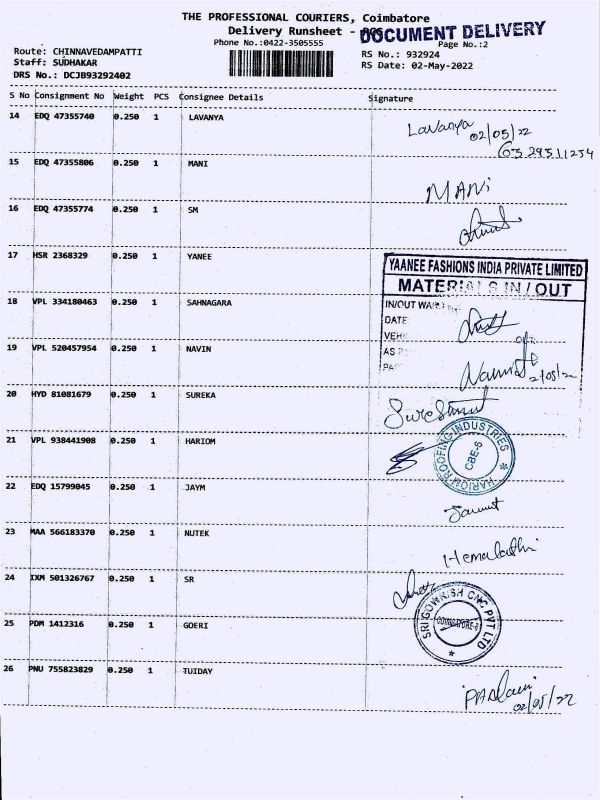 THE PROFESSIONAL COURIERS, Coimbatore
Delivery Runsheet -
DOCUMENT DELIVERY
Phone No.:0422-3505555
Page No.:2
Route: CHINNAVEDAMPATTI
RS No.: 932924
Staff: SUDHAKAR
RS Date: 02-May-2022
DRS No.: DCJB93292402
S No Consignment No Weight PCS Consignee Details Signature
14 EDQ 47355740 0.250 1 LAVANYA
Lavanya 02/05/22
6329511254
15 EDQ 47355806 0.250 1 MANI
MANi
16 EDQ 47355774 0.250 1 SM
17 HSR 2368329 0.250 1 YANEE
YAANEE FASHIONS INDIA PRIVATE LIMITED
MATERIALS IN / OUT
18 VPL 334180463 0.250 1 SAHNAGARA
IN/OUT
DATE
VEH
19 VPL 520457954 0.250 1 NAVIN
AS
PA
2/05/22
20 HYD 81081679 0.250 1 SUREKA
21 VPL 938441908 0.250 1 HARIOM
HARIOM ROOFING INDUSTRIES
CBE-6
22 EDQ 15799045 0.250 1 JAYM
23 MAA 566183370 0.250 1 NUTEK
Hemalathi
24 IXM 501326767 0.250 1 SR
25 PDM 1412316 0.250 1 GOERI
SRI GOWRISH CNC PVT LTD
COIMBATORE-6
26 PNU 755823829 0.250 1 TUIDAY
02/05/22